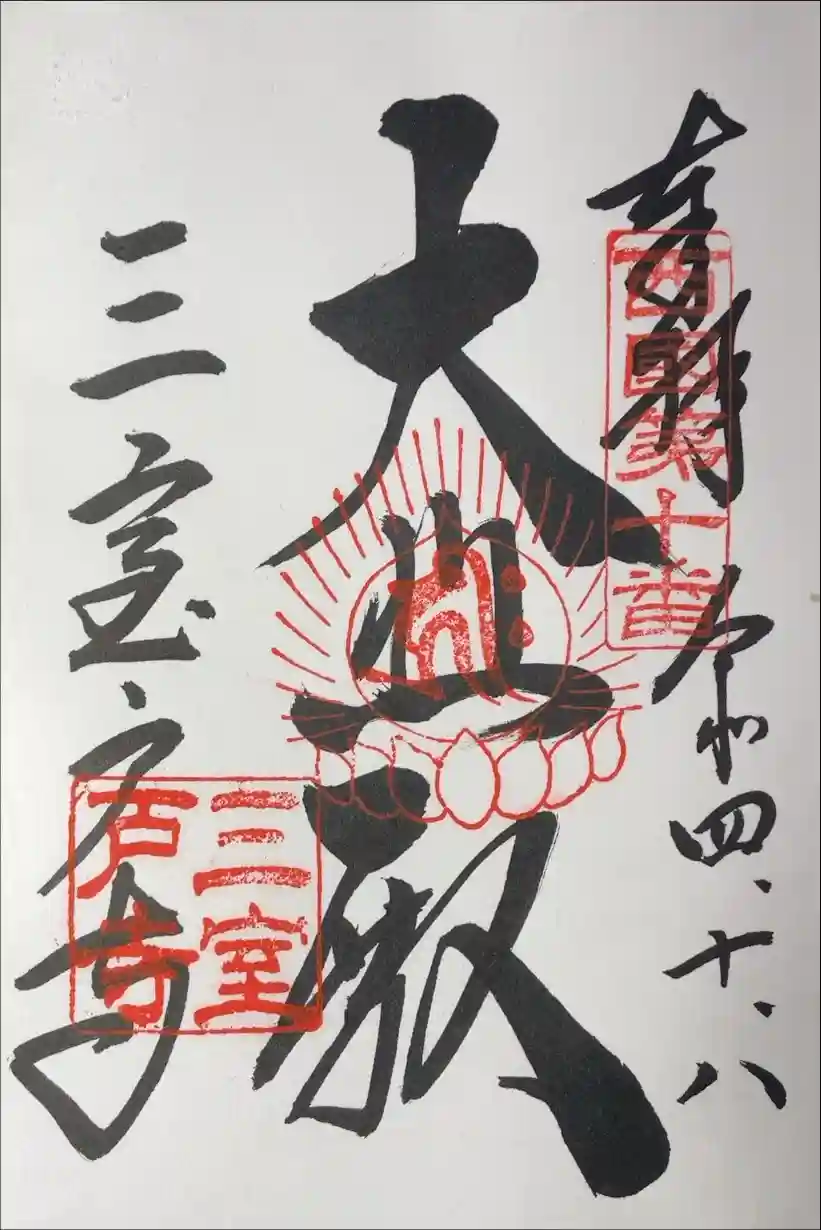 奉拝
令和四、十、八
西國第十番
大悲殿
三室戸寺
三室
戸寺